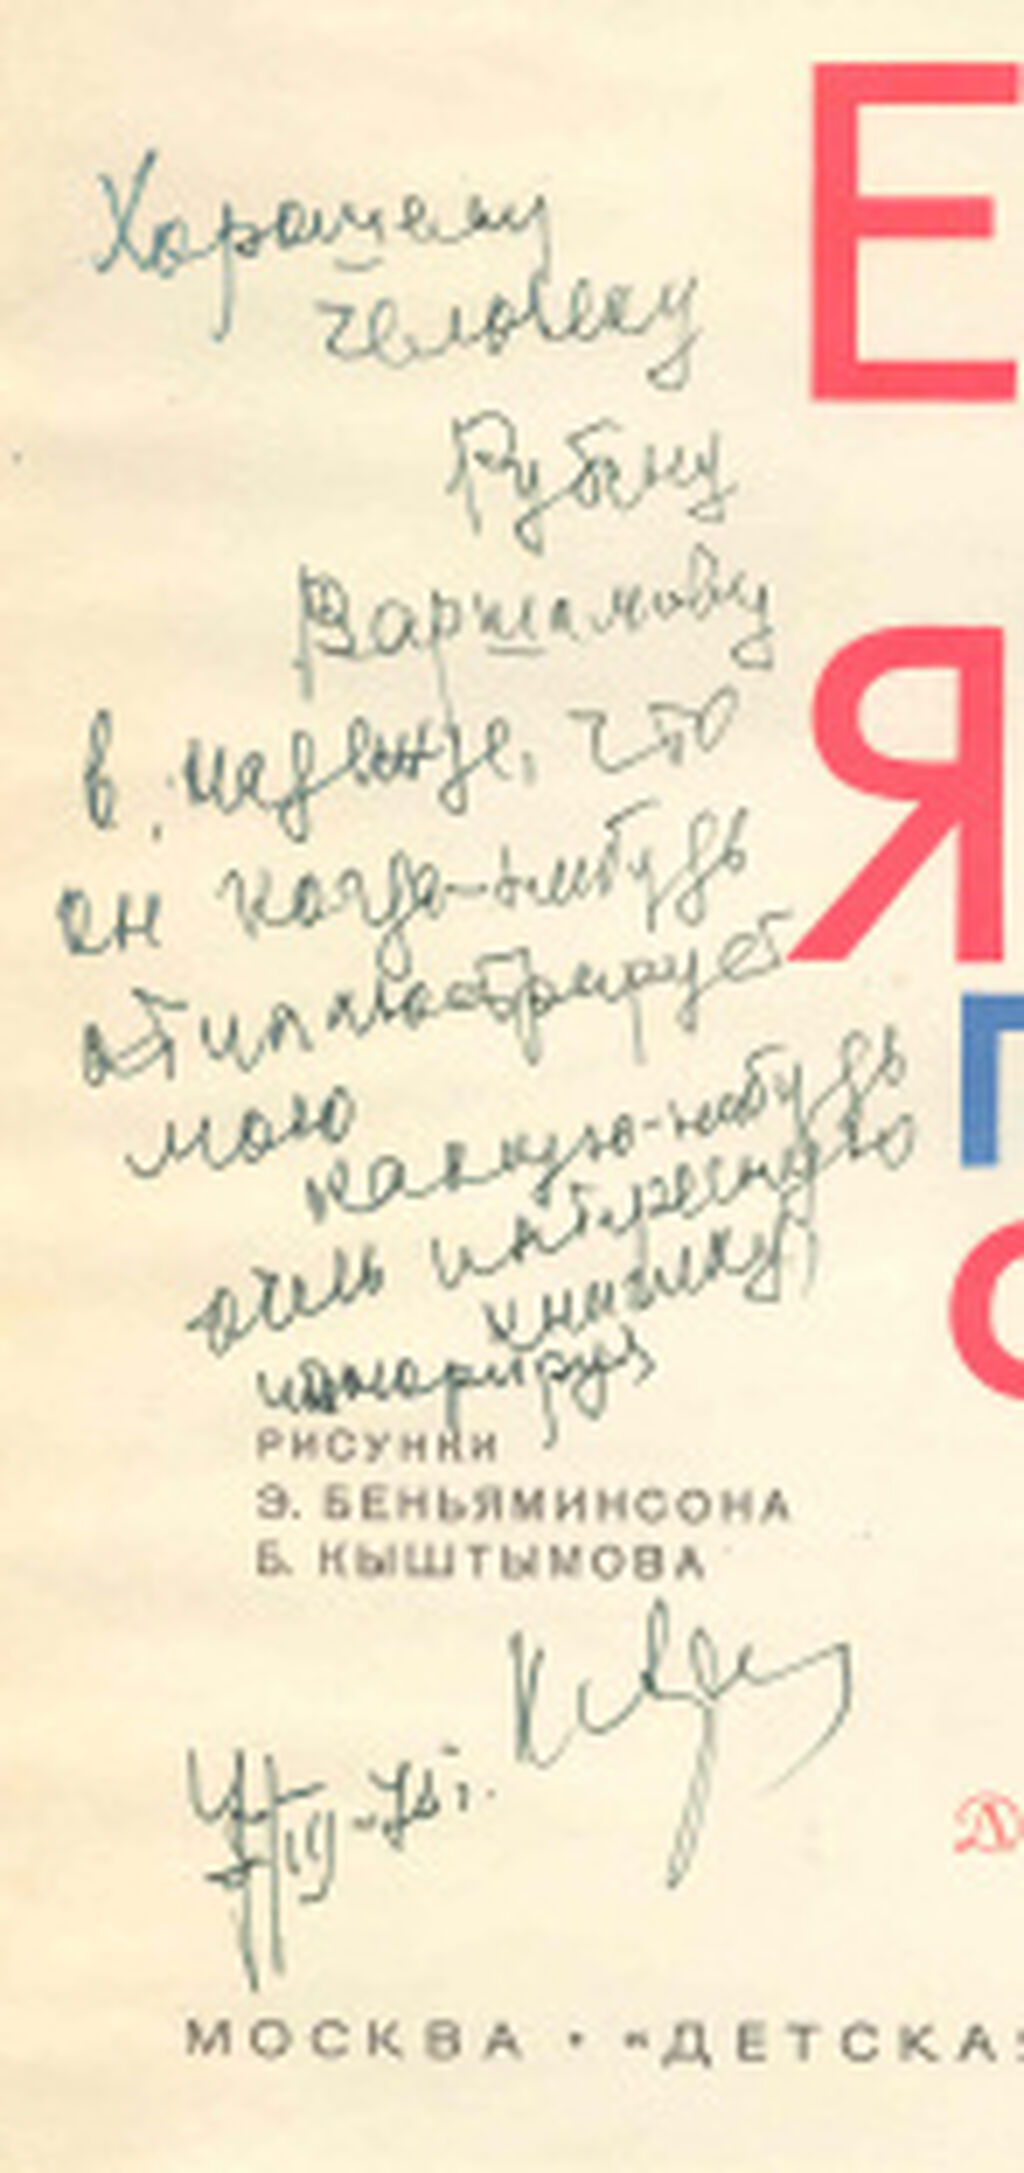 Хорошему
человеку
Рубену
Варшамову
в надежде, что
он когда-нибудь
отиллюстрирует
мою
какую-нибудь
очень
книжку
Е
Я
П
РИСУНКИ
Э. БЕНЬЯМИНСОНА
Б. КЫШТЫМОВА
МОСКВА • «ДЕТСКАЯ